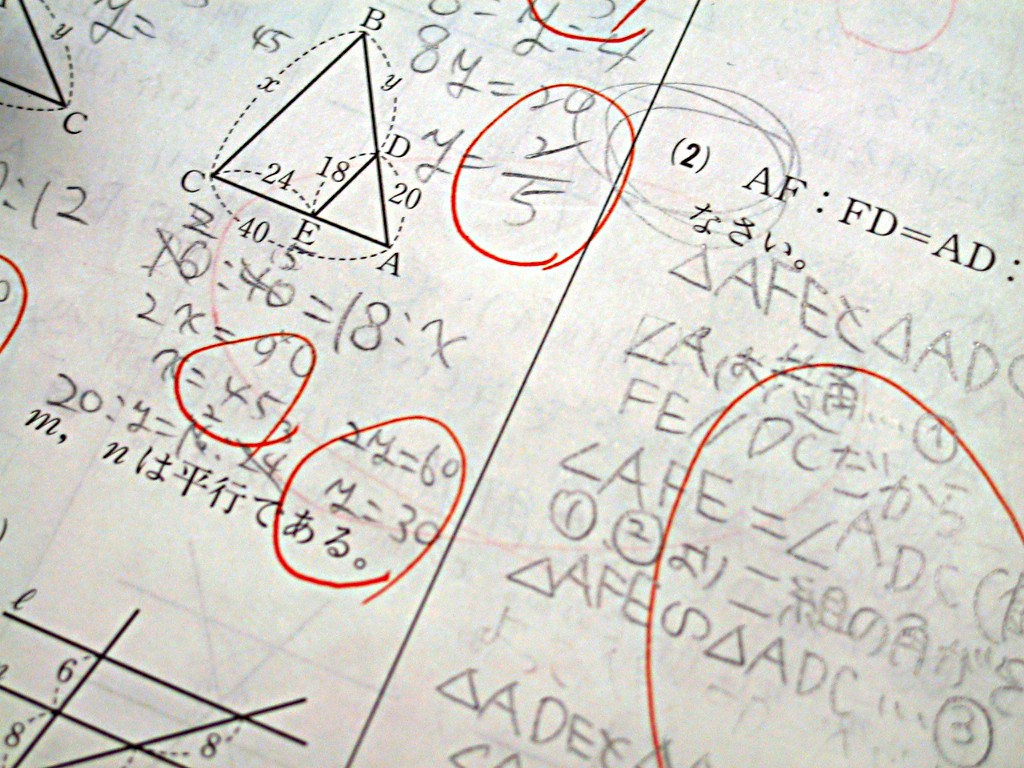 y
C
y=
:12
B
45
x
y
D
C
24
18
20
40
E
A
y=4
8y=24
y=
2
5
16:40=18:x
2x=90
x=45
20:y=16:24
2y=60
y=30
m, nは平行である。
ℓ
6
8
8
(2) AF:FD=AD:
なさい。
△AFEと△ADC
∠Aは共通…①
FE//DCだから
∠AFE=∠ADC(
①②より二組の角が
△AFE∽△ADC…③
よって
△ADEと△